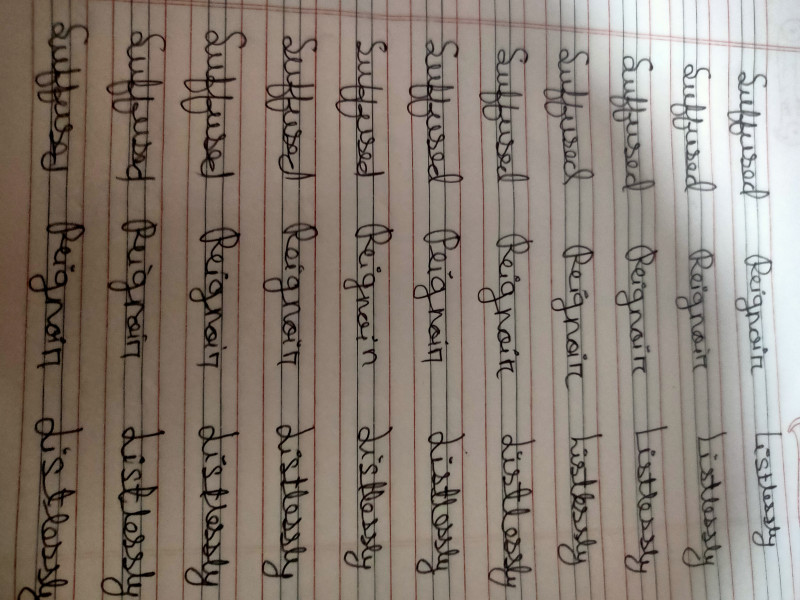 Suffused Peignoir Listlessly
Suffused Peignoir Listlessly
Suffused Peignoir Listlessly
Suffused Peignoir Listlessly
Suffused Peignoir Listlessly
Suffused Peignoir Listlessly
Suffused Peignoir Listlessly
Suffused Peignoir Listlessly
Suffused Peignoir Listlessly
Suffused Peignoir Listlessly
Suffused Peignoir Listlessly